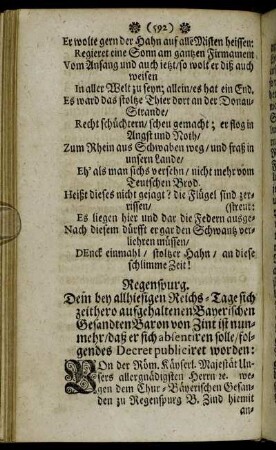 (592)
Er wolte gern der Hahn auf alle Misten heissen:
Regieret eine Sonn am gantzen Firmament
Vom Anfang und auch jetzt/ so wolt er diß auch
weisen
In aller Welt zu seyn; allein/ es hat ein End.
Es ward das stoltze Thier dort an der Donau-
Strande/
Recht schüchtern/ scheu gemacht; er flog in
Angst und Noth/
Zum Rhein aus Schwaben weg/ und fraß in
unsern Lande/
Eh' als man sichs versehn/ nicht mehr vom
Teutschen Brod.
Heißt dieses nicht gejagt? die Flügel sind zer-
rissen/ (streut:
Es liegen hier und dar die Federn ausge-
Nach diesem dürfft er gar den Schwantz ver-
liehren müssen/
DEnck einmahl/ stoltzer Hahn/ an diese
schlimme Zeit!
Regenspurg.
Dein bey allhiesigen Reichs-Tage sich
zeithero aufgehaltenen Bayerischen
Gesandten Baron von Zint ist nun-
mehr/ daß er sich absentiren solle/ fol-
gendes Decret publiciret worden:
VOn der Röm. Käyserl. Majestät Un-
sers allergnädigsten Herrn ꝛc. we-
gen dem Chur-Bäyerischen Gesan-
den zu Regenspurg B. Zind hiemit
an-